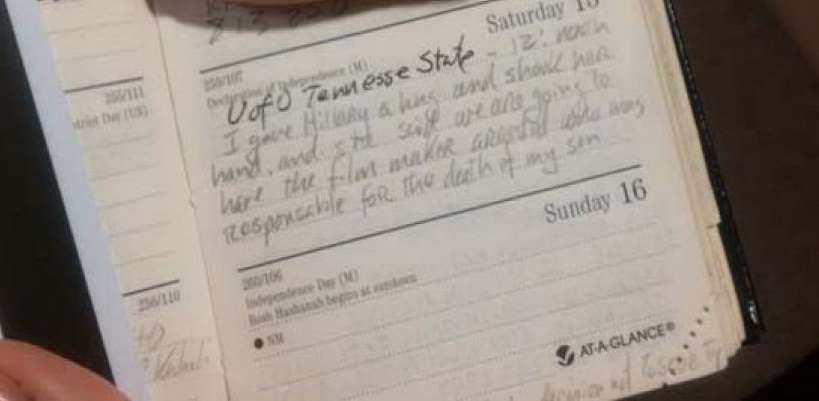 Saturday 15
259/107
Declaration of Independence (M)
U of O Tennesse State - 12: noon
I gave Hillary a hug and shook her
hand. and she said we are going to
have the film maker arrested who was
responsable for the death of my son
Sunday 16
260/106
Independence Day (M)
Rosh Hashanah begins at sundown
NM
AT-A-GLANCE®
255/111
Patriot Day (US)
256/110